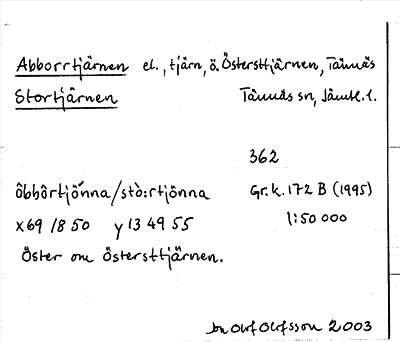 Abborrtjärnen el., tjärn, ö. Östersttjärnen, Tännäs
Stortjärnen Tännäs sn, Jämtl. l.
362
ôbbôrtjönna/stò:rtjönna Gr. k. 172 B (1995)
x 69 18 50 y 13 49 55 1:50 000
Öster om Östersttjärnen.
Jon Olof Olofsson 2003